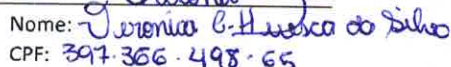 Nome: Veronica C. Huesca da Silva
CPF: 397.366.498-65